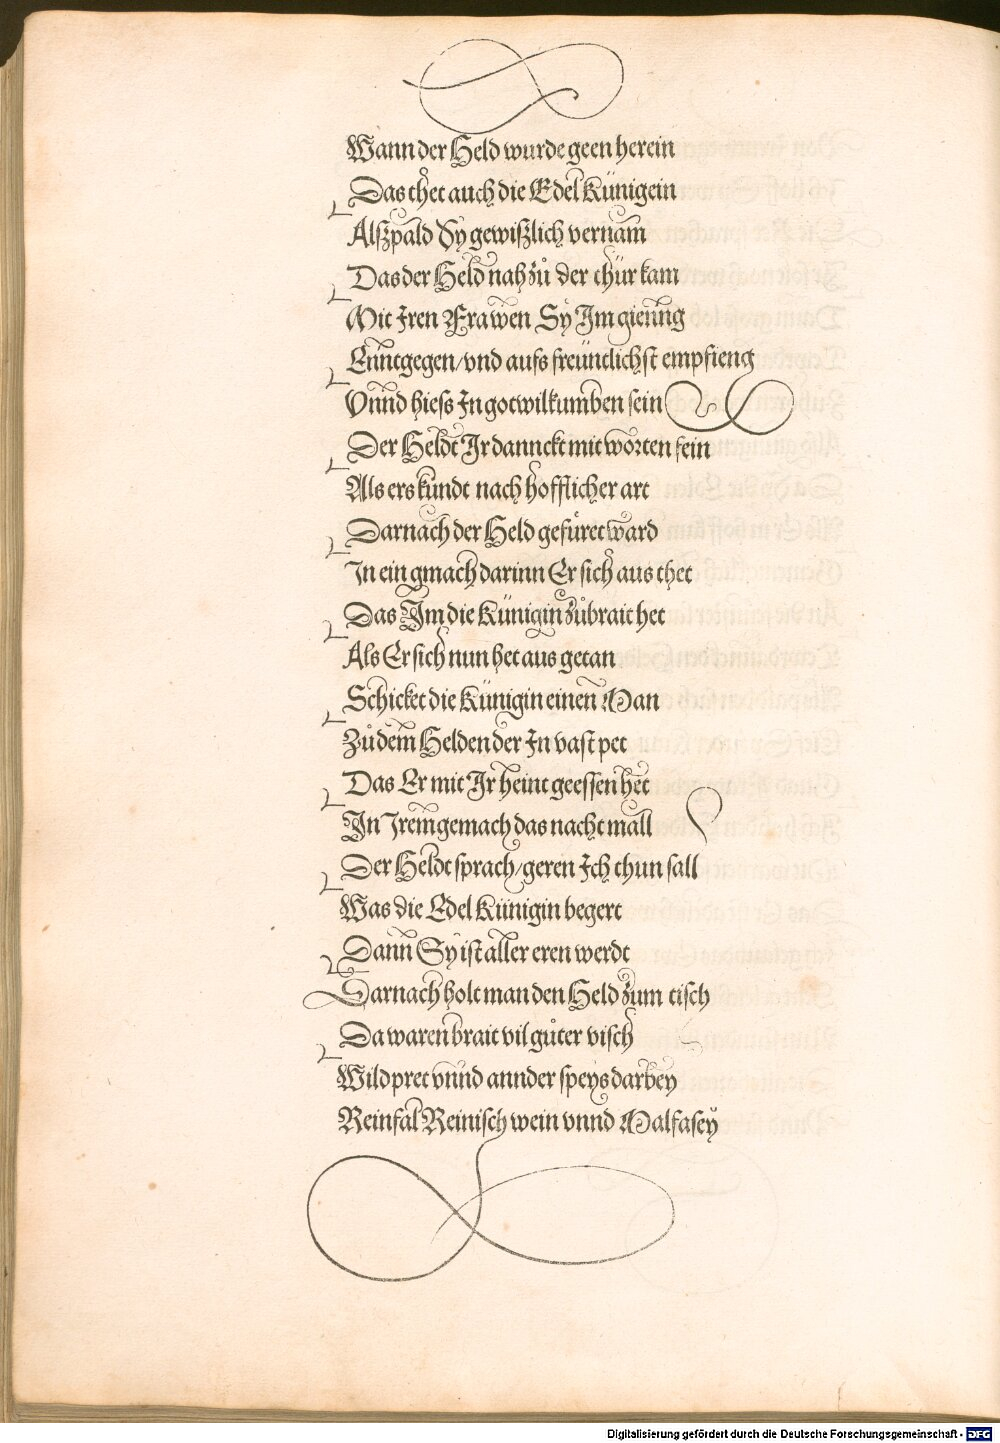 Wann der Held wurde geen herein
Das thet auch die Edel Künigein
Alßpald Sy gewißlich vernam
Das der Held nah zů der thür kam
Mit Iren Frawen Sy Im gienng
Enntgegen/vnd aufs freüntlichst empfieng
Vnnd hiess In gotwilkumben sein
Der Heldt Ir dannckt mit worten fein
Als ers kundt nach hofflicher art
Darnach der Held gefüret ward
In ein gmach darinn Er sich aus thet
Das Im die Künigin zůbrait het
Als Er sich nun het aus getan
Schicket die Künigin einen Man
Zů dem Helden der In vast pet
Das Er mit Ir heint geessen het
In Irem gemach das nacht mall
Der Heldt sprach/geren Ich thun sall
Was die Edel Künigin begert
Dann Sy ist aller eren werdt
Darnach holt man den Held zum tisch
Da waren brait vil gůter visch
Wildpret vnnd annder speys darbey
Reinfal Reinisch wein vnnd Malfasey
Digitalisierung gefördert durch die Deutsche Forschungsgemeinschaft - DFG